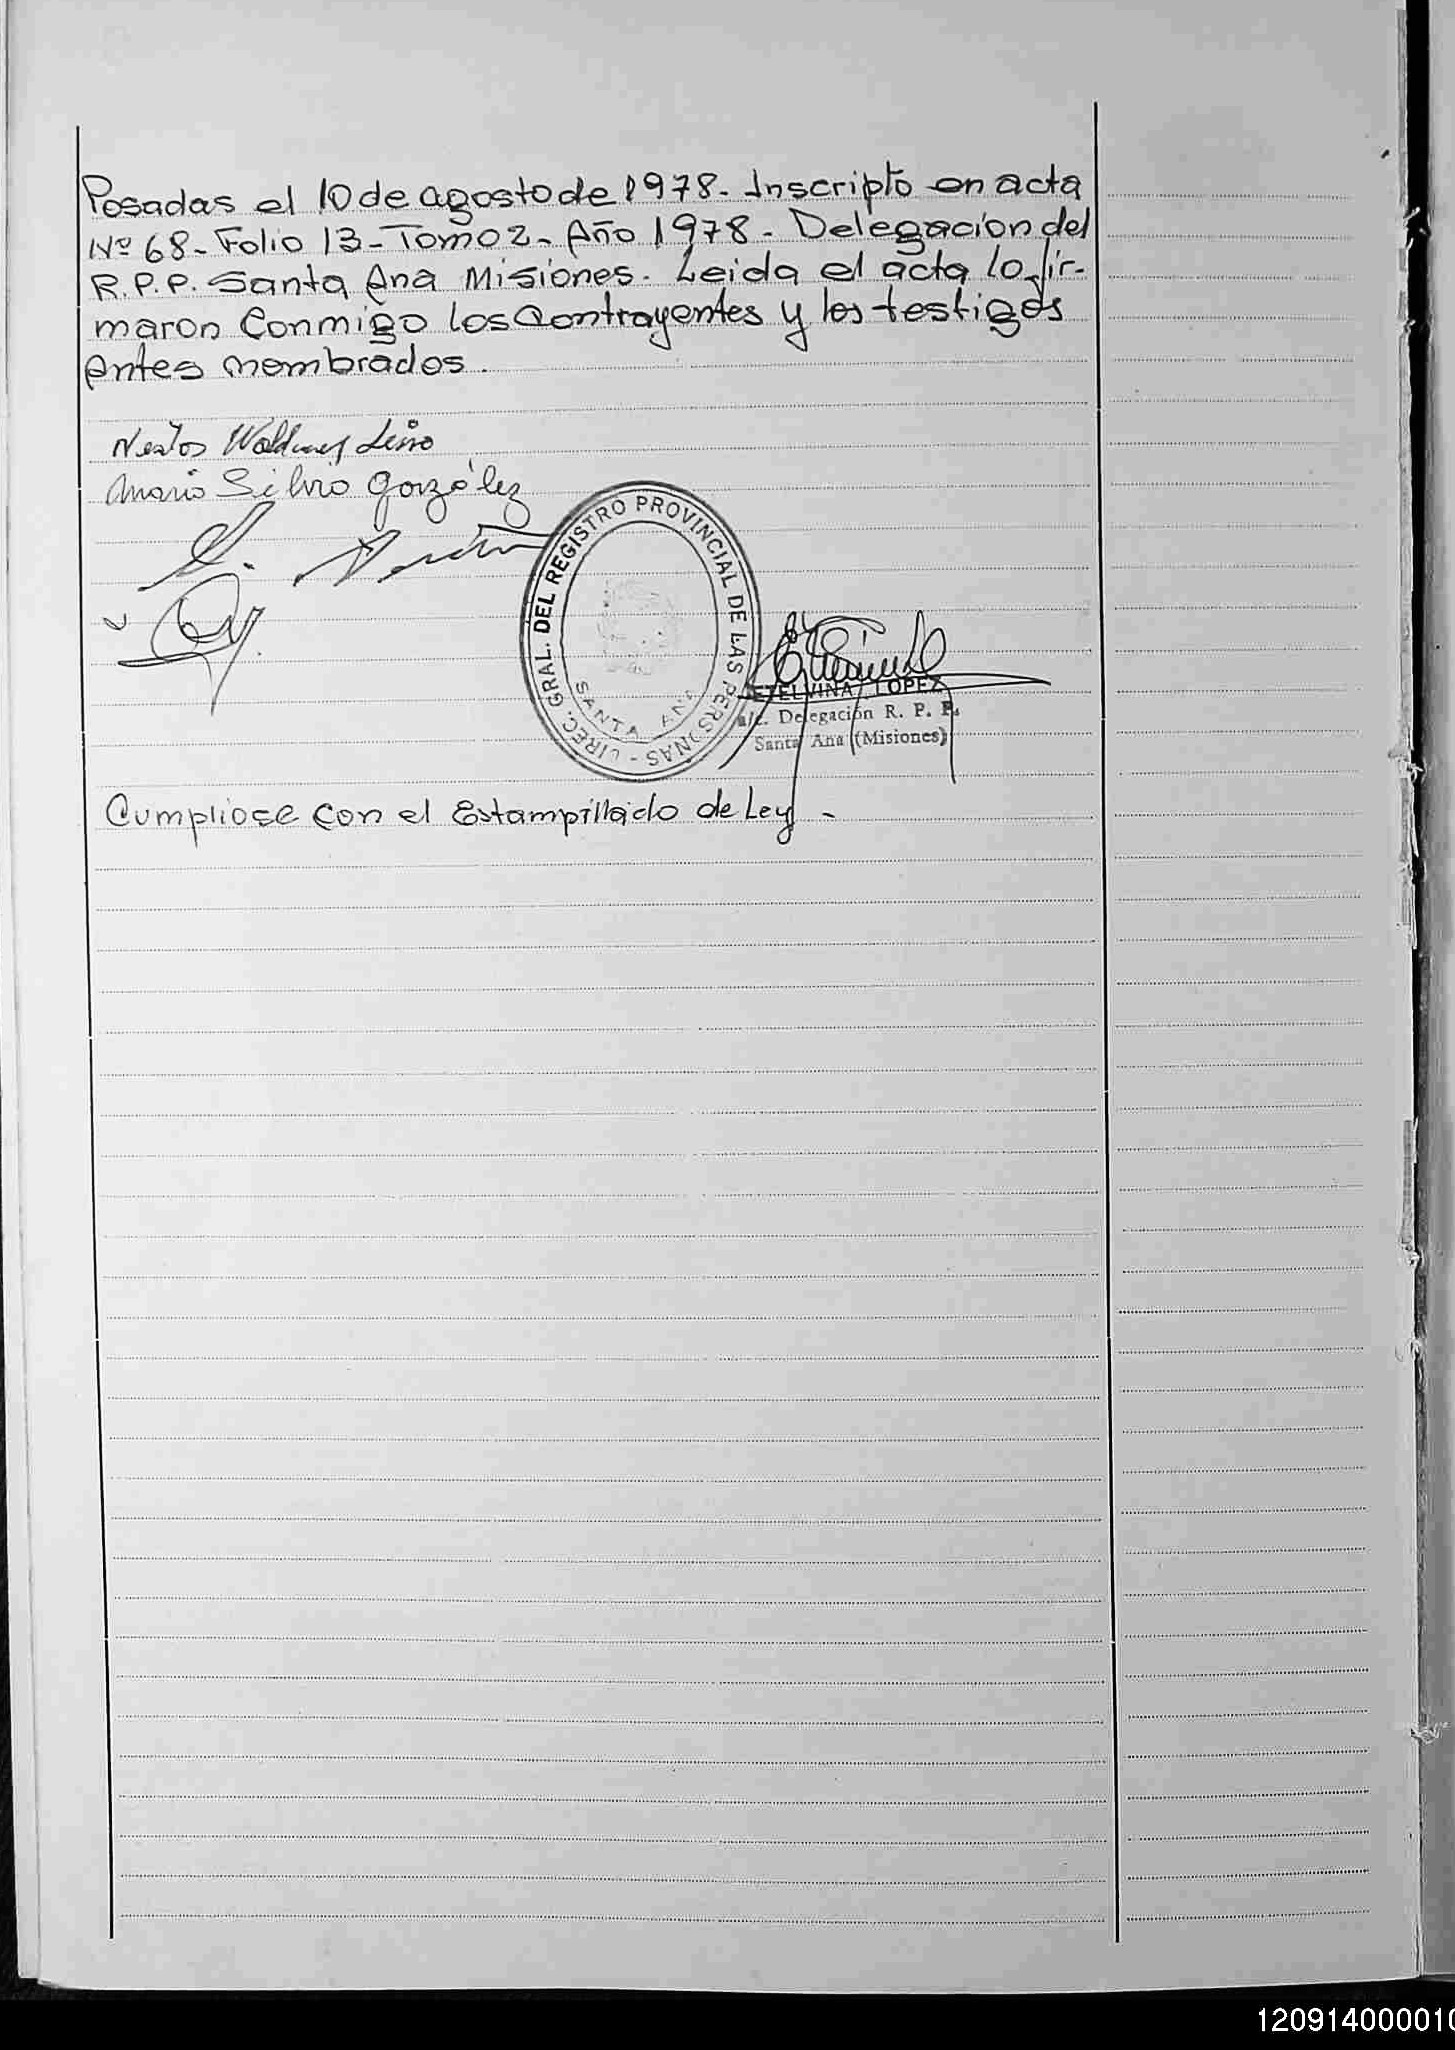 Posadas el 10 de agosto de 1978. Inscripto en acta
Nº 68 - Folio 13 - Tomo 2 - Año 1978 - Delegación del
R.P.P. Santa Ana Misiones. Leida el acta lo fir-
maron conmigo los contrayentes y los testigos
antes nombrados.
Mario Silvio González
DIREC. GRAL. DEL REGISTRO PROVINCIAL DE LAS PERSONAS -
SANTA ANA
ETELVINA LOPEZ
a/c. Delegación R. P. P.
Santa Ana (Misiones)
Cumpliose con el Estampillado de Ley -
120914000010